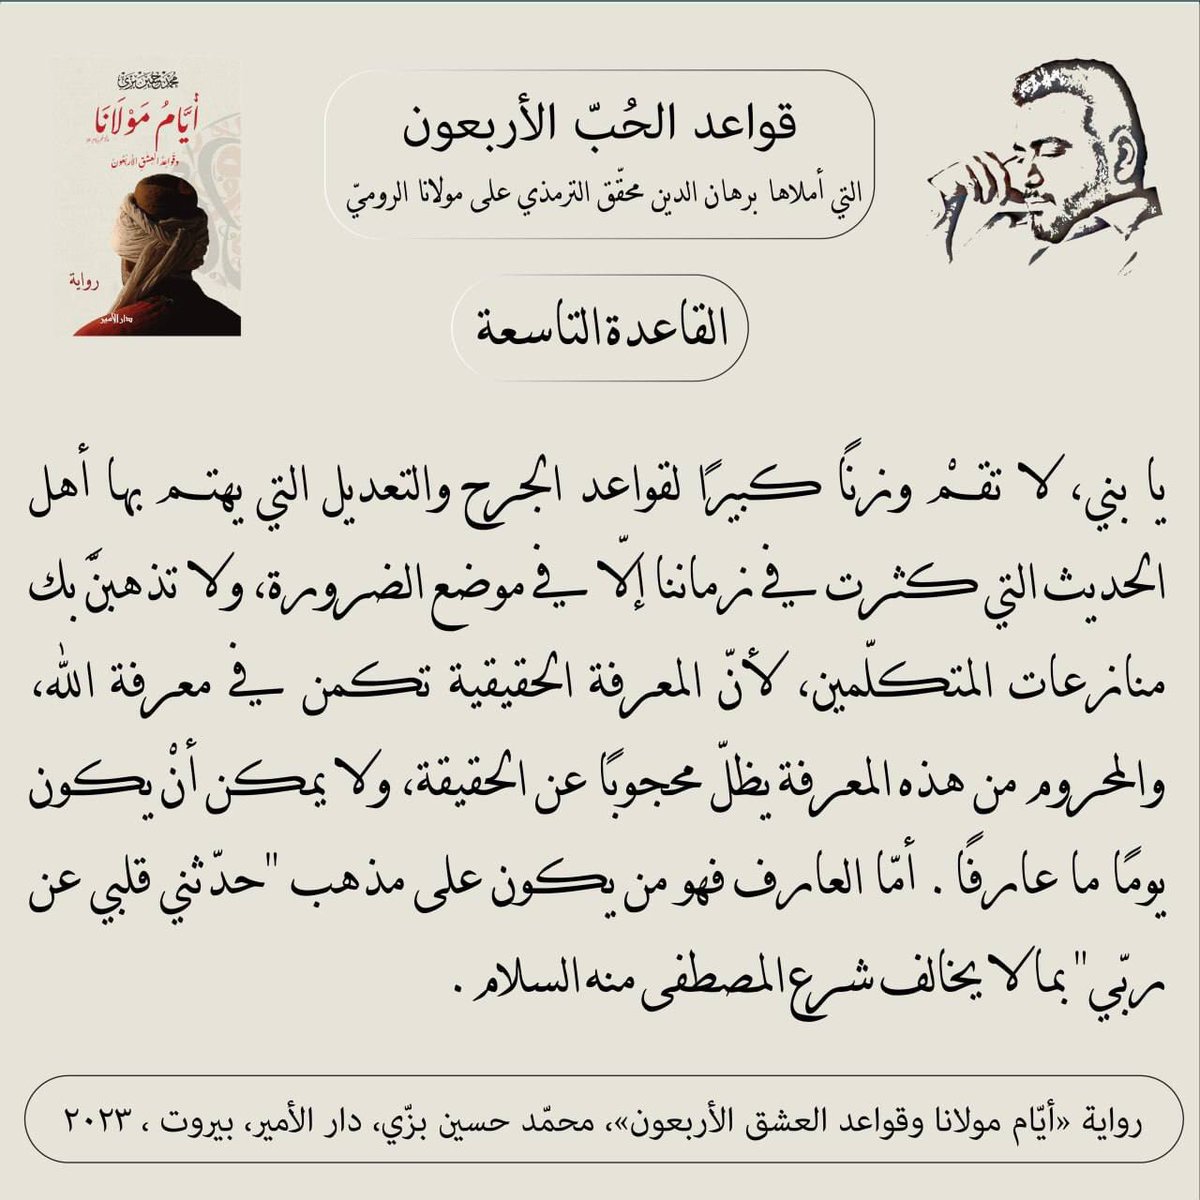 محمد حسين بزي
أيَّامُ مَوْلَانَا
وقواعد العشق الأربعون
رواية
دار الأمير
قواعد الحُبّ الأربعون
التي أملاها برهان الدين محقّق الترمذي على مولانا الروميّ
القاعدة التاسعة
يا بني، لا تقمْ وزنًا كبيرًا لقواعد الجرح والتعديل التي يهتم بها أهل
الحديث التي كثرت في زماننا إلّا في موضع الضرورة، ولا تذهبنَّ بك
منازعات المتكلّمين، لأنّ المعرفة الحقيقية تكمن في معرفة الله،
والمحروم من هذه المعرفة يظلّ محجوبًا عن الحقيقة، ولا يمكن أنْ يكون
يومًا ما عارفًا . أمّا العارف فهو من يكون على مذهب "حدّثني قلبي عن
ربّي" بما لا يخالف شرع المصطفى منه السلام .
رواية «أيّام مولانا وقواعد العشق الأربعون»، محمّد حسين بزّي، دار الأمير، بيروت ، ٢٠٢٣